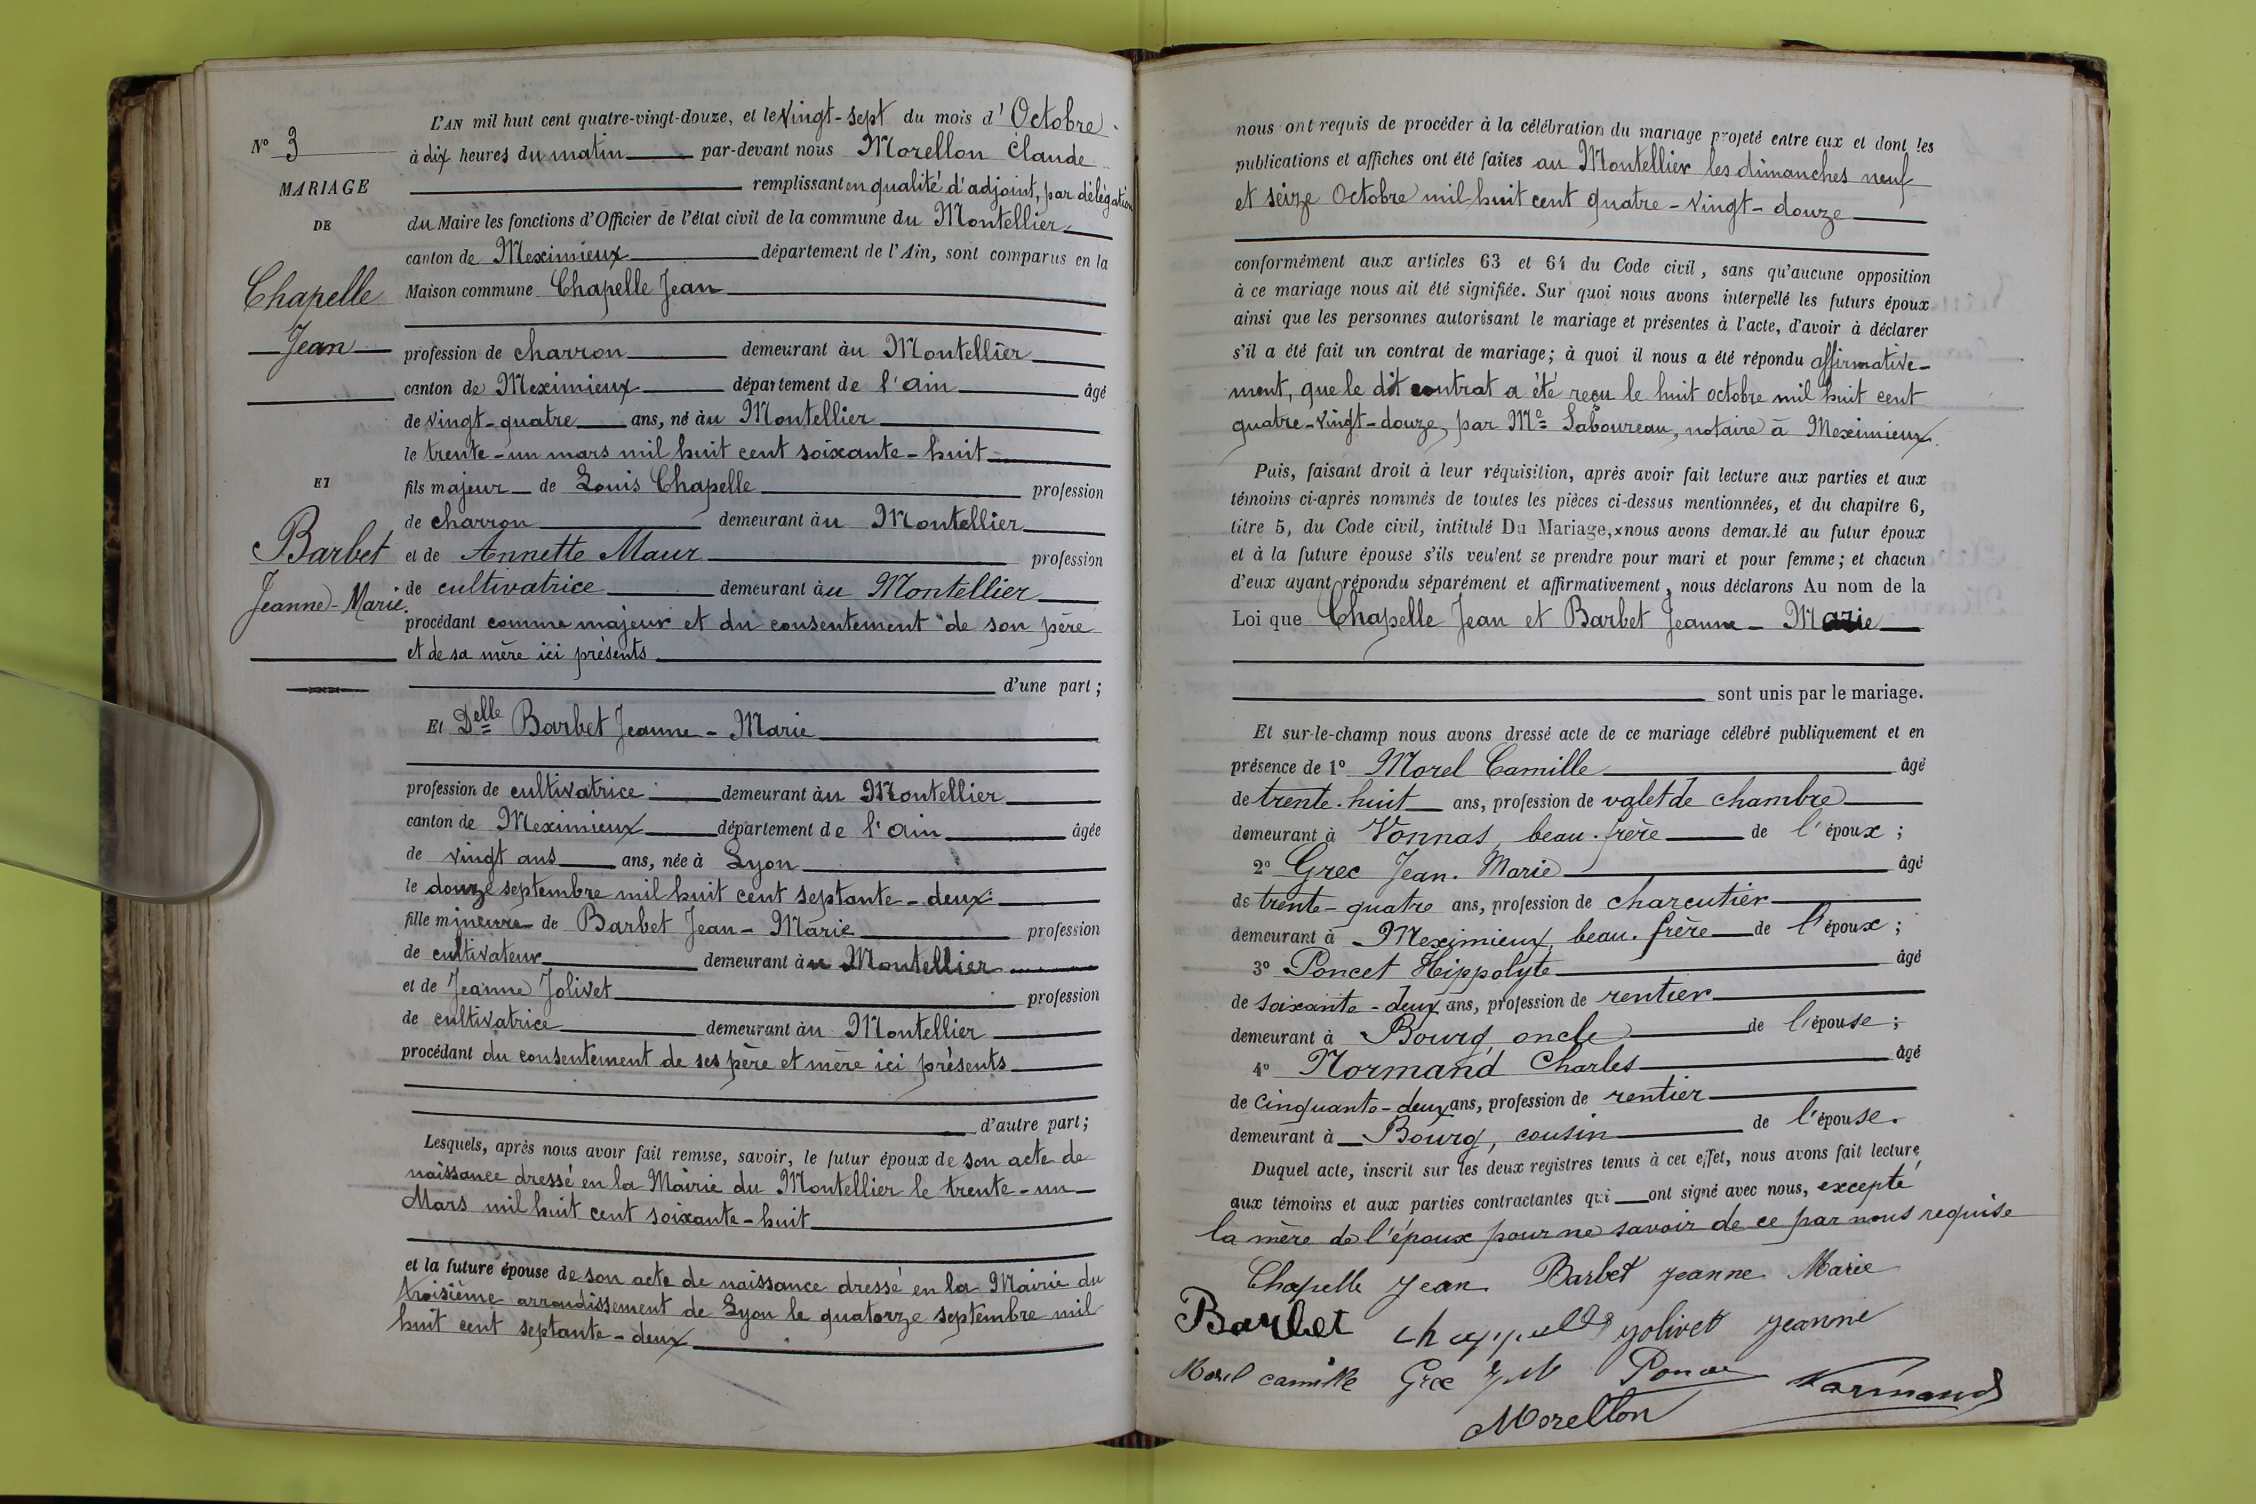 N° 3
MARIAGE
DE
Chapelle
Jean
ET
Barbet
Jeanne-Marie.
L'AN mil huit cent quatre-vingt-douze, et le vingt-sept du mois d'Octobre
à dix heures du matin par-devant nous Morellon Claude
remplissant en qualité d'adjoint, par délégation
du Maire les fonctions d'Officier de l'état civil de la commune du Montellier
canton de Meximieux département de l'Ain, sont comparus en la
Maison commune Chapelle Jean
profession de charron demeurant au Montellier
canton de Meximieux département de l'ain âgé
de vingt-quatre ans, né au Montellier
le trente-un mars mil huit cent soixante-huit
fils majeur de Louis Chapelle profession
de charron demeurant au Montellier
et de Annette Maur profession
de cultivatrice demeurant au Montellier
procédant comme majeur et du consentement de son père
et de sa mère ici présents
d'une part ;
Et Delle Barbet Jeanne-Marie
profession de cultivatrice demeurant au Montellier
canton de Meximieux département de l'ain âgée
de vingt ans ans, née à Lyon
le douze septembre mil huit cent septante-deux
fille mineure de Barbet Jean-Marie profession
de cultivateur demeurant au Montellier
et de Jeanne Jolivet profession
de cultivatrice demeurant au Montellier
procédant du consentement de ses père et mère ici présents
d'autre part ;
Lesquels, après nous avoir fait remise, savoir, le futur époux de son acte de
naissance dressé en la Mairie du Montellier le trente-un
Mars mil huit cent soixante-huit
et la future épouse de son acte de naissance dressé en la Mairie du
troisième arrondissement de Lyon le quatorze septembre mil
huit cent septante-deux
nous ont requis de procéder à la célébration du mariage projeté entre eux et dont les
publications et affiches ont été faites au Montellier les dimanches neuf
et seize Octobre mil huit cent quatre-vingt-douze
conformément aux articles 63 et 64 du Code civil, sans qu'aucune opposition
à ce mariage nous ait été signifiée. Sur quoi nous avons interpellé les futurs époux
ainsi que les personnes autorisant le mariage et présentes à l'acte, d'avoir à déclarer
s'il a été fait un contrat de mariage ; à quoi il nous a été répondu affirmative-
ment, que le dit contrat a été reçu le huit octobre mil huit cent
quatre-vingt-douze, par Me Laboureau, notaire à Meximieux.
Puis, faisant droit à leur réquisition, après avoir fait lecture aux parties et aux
témoins ci-après nommés de toutes les pièces ci-dessus mentionnées, et du chapitre 6,
titre 5, du Code civil, intitulé Du Mariage, x nous avons demandé au futur époux
et à la future épouse s'ils veulent se prendre pour mari et pour femme ; et chacun
d'eux ayant répondu séparément et affirmativement, nous déclarons Au nom de la
Loi que Chapelle Jean et Barbet Jeanne-Marie
sont unis par le mariage.
Et sur-le-champ nous avons dressé acte de ce mariage célébré publiquement et en
présence de 1° Morel Camille âgé
de trente-huit ans, profession de valet de chambre
demeurant à Vonnas, beau-frère de l'époux ;
2° Grec Jean-Marie âgé
de trente-quatre ans, profession de charcutier
demeurant à Meximieux, beau-frère de l'époux ;
3° Poncet Hippolyte âgé
de soixante-deux ans, profession de rentier
demeurant à Bourg, oncle de l'épouse ;
4° Normand Charles âgé
de cinquante-deux ans, profession de rentier
demeurant à Bourg, cousin de l'épouse.
Duquel acte, inscrit sur les deux registres tenus à cet effet, nous avons fait lecture
aux témoins et aux parties contractantes qui ont signé avec nous, excepté
la mère de l'époux pour ne savoir de ce par nous requise
Chapelle Jean Barbet Jeanne Marie
Barbet Chappelle Jolivet Jeanne
Morel camille Grec J M Poncet Normand
Morellon